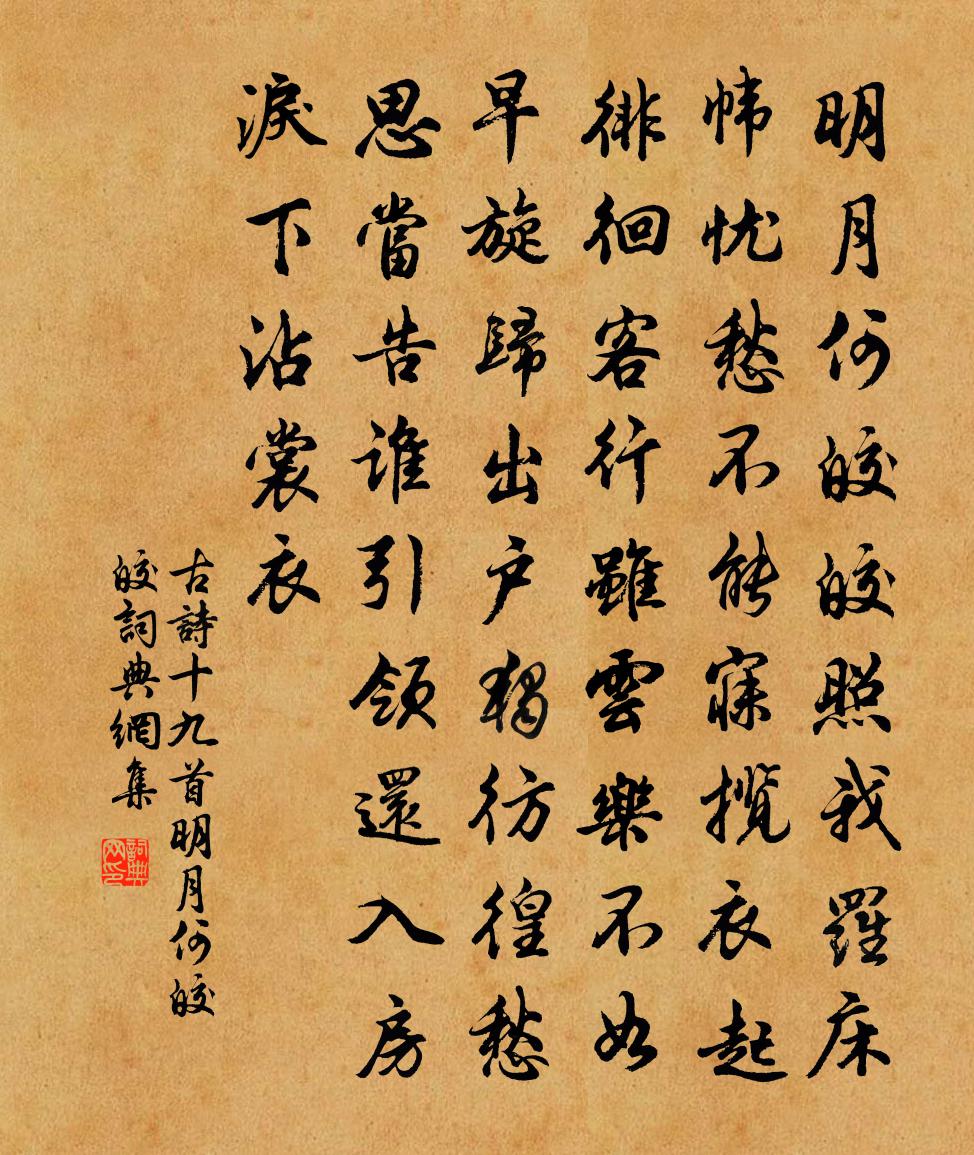 明月何皎皎照我羅床
帏忧愁不能寐揽衣起
徘徊客行雖雲樂不如
早旋歸出户獨彷徨愁
思當告誰引領還入房
淚下沾裳衣
古詩十九首明月何皎
皎詞典網集
詞典网印